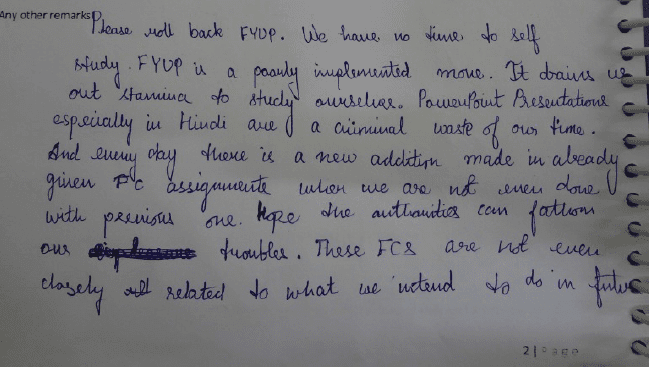 Any other remarks
Please roll back FYUP. We have no time to self
study. FYUP is a poorly implemented move. It drains us
out stamina to study ourselves. PowerPoint Presentations
especially in Hindi are a criminal waste of our time.
And every day there is a new addition made in already
given FC assignments when we are not even done
with previous one. Hope the authorities can fathom
our troubles. These FCS are not even
closely related to what we intend to do in future
2 | Page